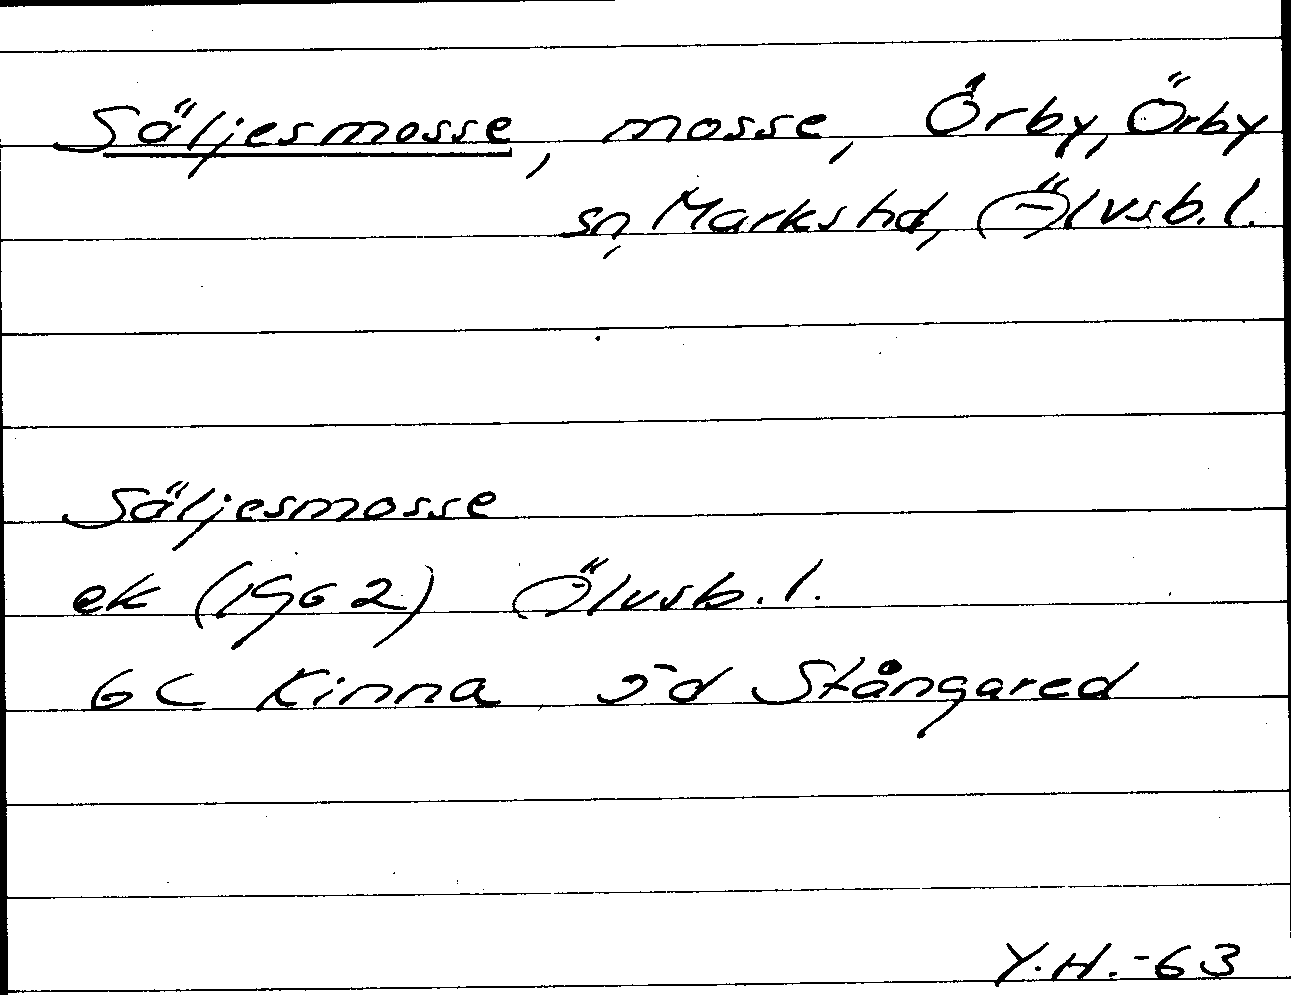 Säljesmosse, mosse, Örby, Örby
sn, Marks hd, Älvsb. l.
Säljesmosse
ek (1962) Älvsb. l.
6C Kinna 5d Stångared
Y.H.-63